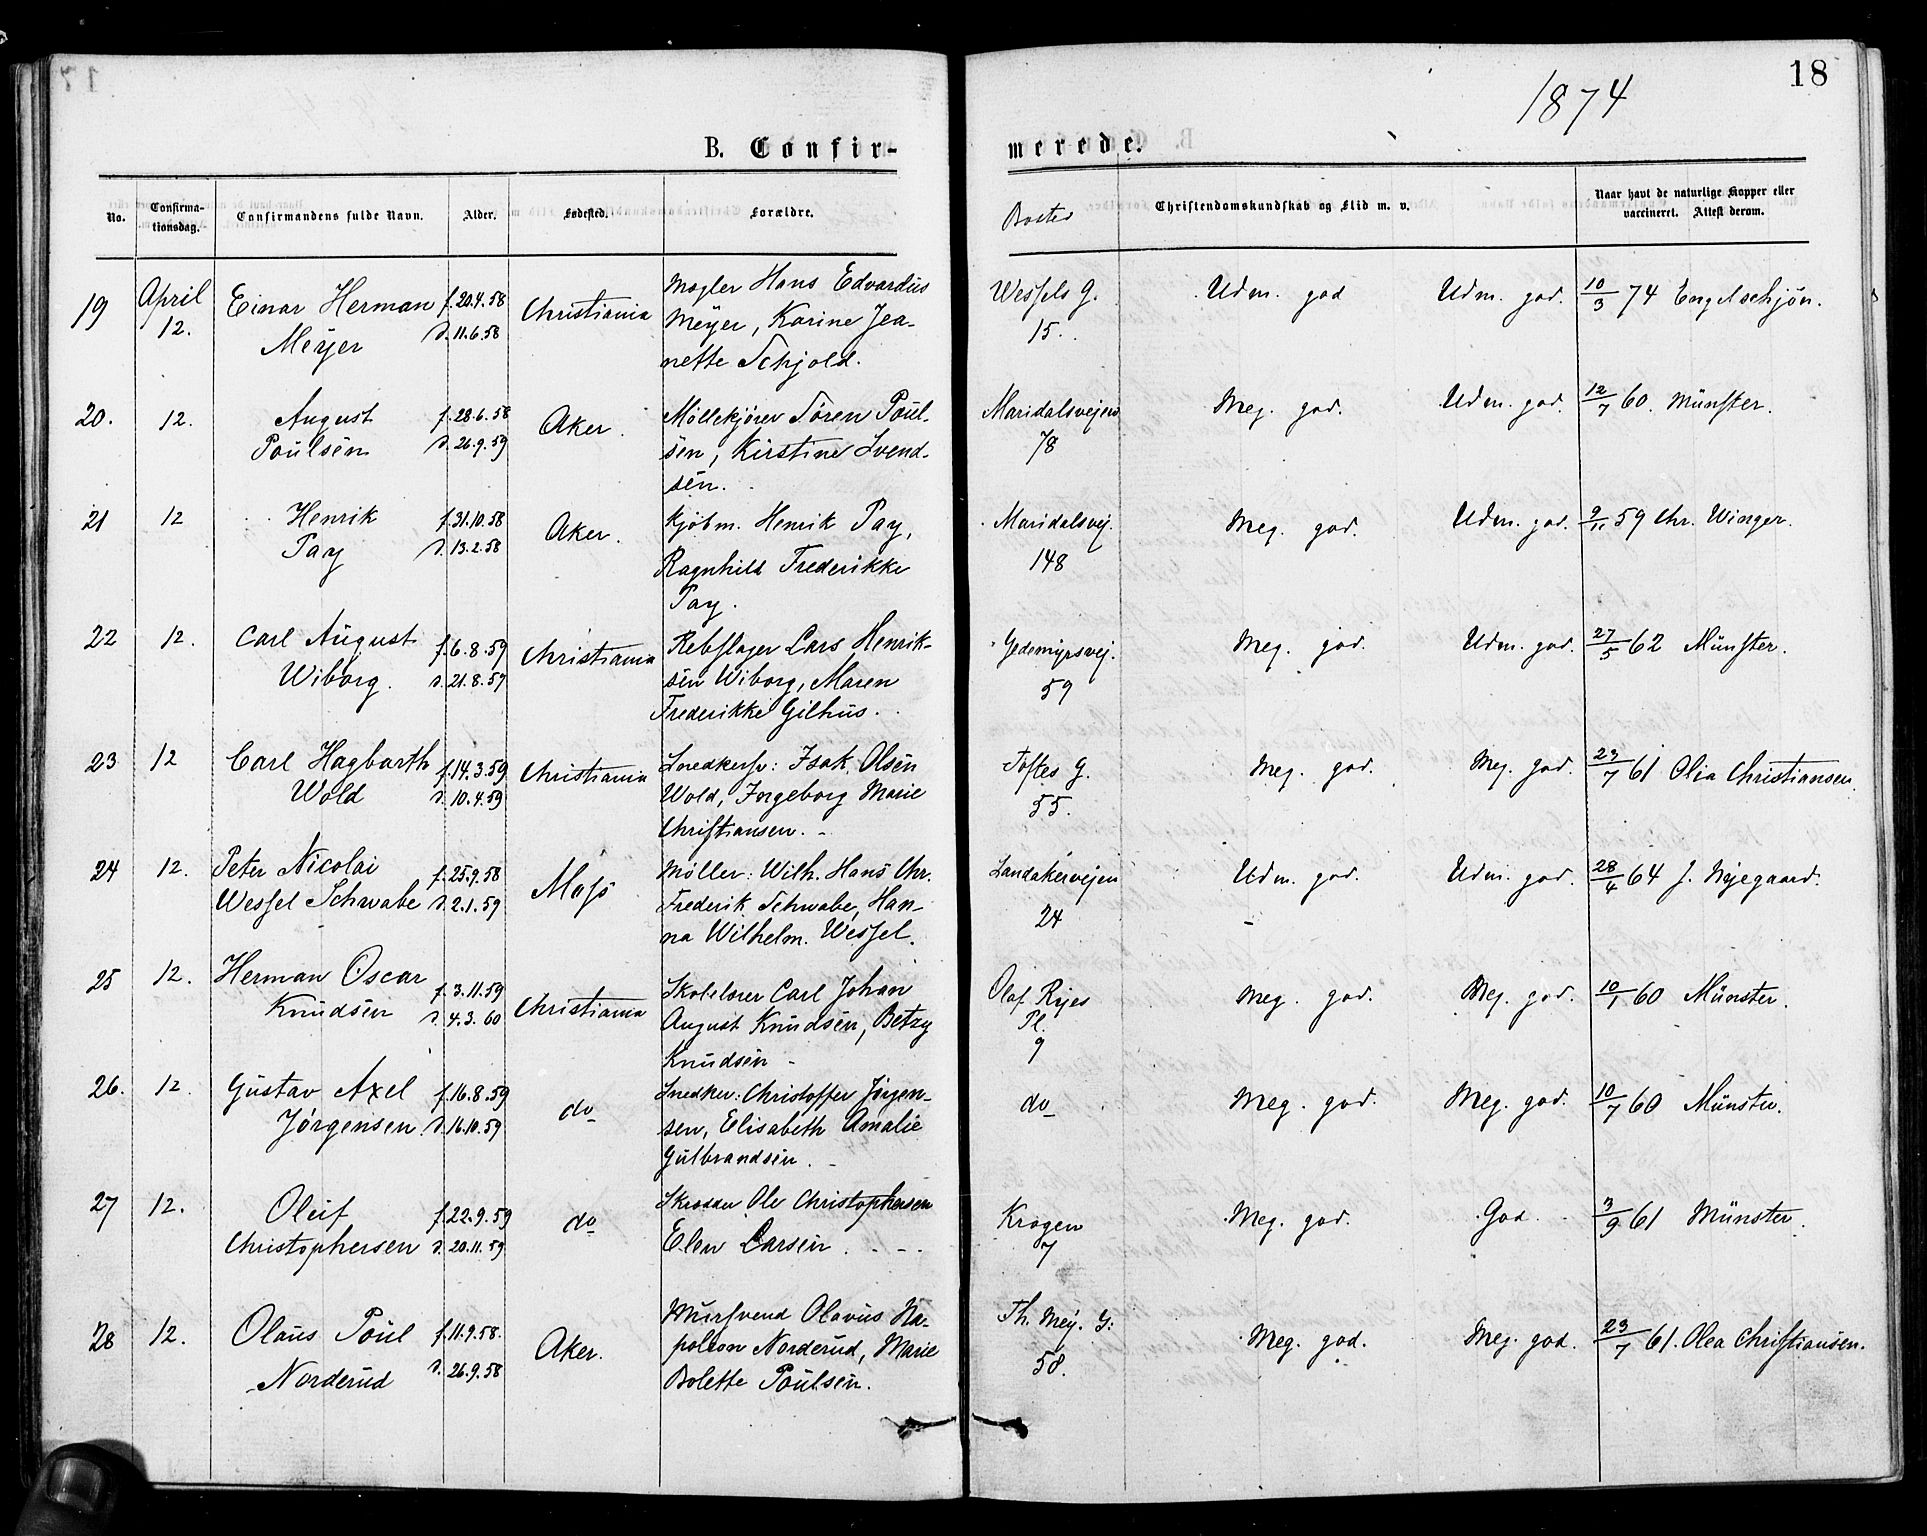 18
1874
B. Confir-
merede.
No.
Confirma-
tionsdag.
Confirmandens fulde Navn.
Alder.
Fødested.
Forældre.
Bosted
Christendomskundskab og Flid m. v.
Naar havt de naturlige Kopper eller
vaccineret. Attest derom.
19 April 12. Einar Herman Meÿer f. 20.4.58 d. 11.6.58 Christiania
Mægler Hans Edvardus
Meÿer, Karine Jea-
nette Schjold.
Wessels G. 15. Udm. god Udm. god. 10/3 74 Engelschjøn.
20. 12. August Poulsen f. 28.6.58 d. 26.9.59 Aker.
Møllekjører Søren Poul-
sen, Kirstine Svend-
sen.
Maridalsvejen 78 Meg. god. Udm. god. 12/7 60. Münster.
21 12 Henrik Pay f. 31.10.58 d. 13.2.58 Aker.
Kjøbm. Henrik Pay,
Ragnhild Frederikke
Pay.
Maridalsvej. 148 Meg. god. Udm. god. 9/11 59 Chr. Winger.
22 12. Carl August Wiborg. f. 6.8.59 d. 21.8.59 Christiania
Rebslager Lars Henrik-
sen Wiborg, Maren
Frederikke Gilhus.
Gedemyrsvej. 59 Meg. god. Udm. god. 27/5 62 Münster.
23 12 Carl Hagbarth Wold f. 14.3.59 d. 10.4.59 Christiania
Snedkersv: Isak Olsen
Wold, Ingeborg Marie
Christiansen.
Toftes G. 55. Meg. god. Meg. god. 23/7 61 Olia Christiansen.
24 12. Peter Nicolai Wessel Schwabe f. 25.9.58 d. 2.1.59 Moss
Møller: Wilh. Hans Chr.
Frederik Schwabe, Han-
na Wilhelm. Wessel.
Sandakervejen 24 Udm. god. Udm. god. 28/4 64 J. Nyegaard.
25 12. Herman Oscar Knudsen f. 3.11.59 d. 4.3.60 Christiania
Skolelærer Carl Johan
August Knudsen, Betzy
Knudsen
Olaf Ryes Pl. 9 Meg. god. Meg. god. 10/1 60 Münster.
26. 12. Gustav Axel Jørgensen. f. 16.8.59 d. 16.10.59 do
Snedker: Christoffer Jørgen-
sen, Elisabeth Amalie
Gulbrandsen.
do Meg. god. Meg. god. 10/7 60 Münster.
27 12. Oluf Christophersen f. 22.9.59 d. 20.11.59 do
Skrædder Ole Christophersen
Elen Larsen.
Krogen 7 Meg. god. God. 3/9 61 Münster.
28 12. Olaus Poul Norderud f. 11.9.58. d. 26.9.58 Aker.
Muursvend Olavus Na-
poleon Norderud, Marie
Bolette Poulsen.
Th. Mey. G: 58. Meg. god. Meg. god. 23/7 61. Olea Christiansen.